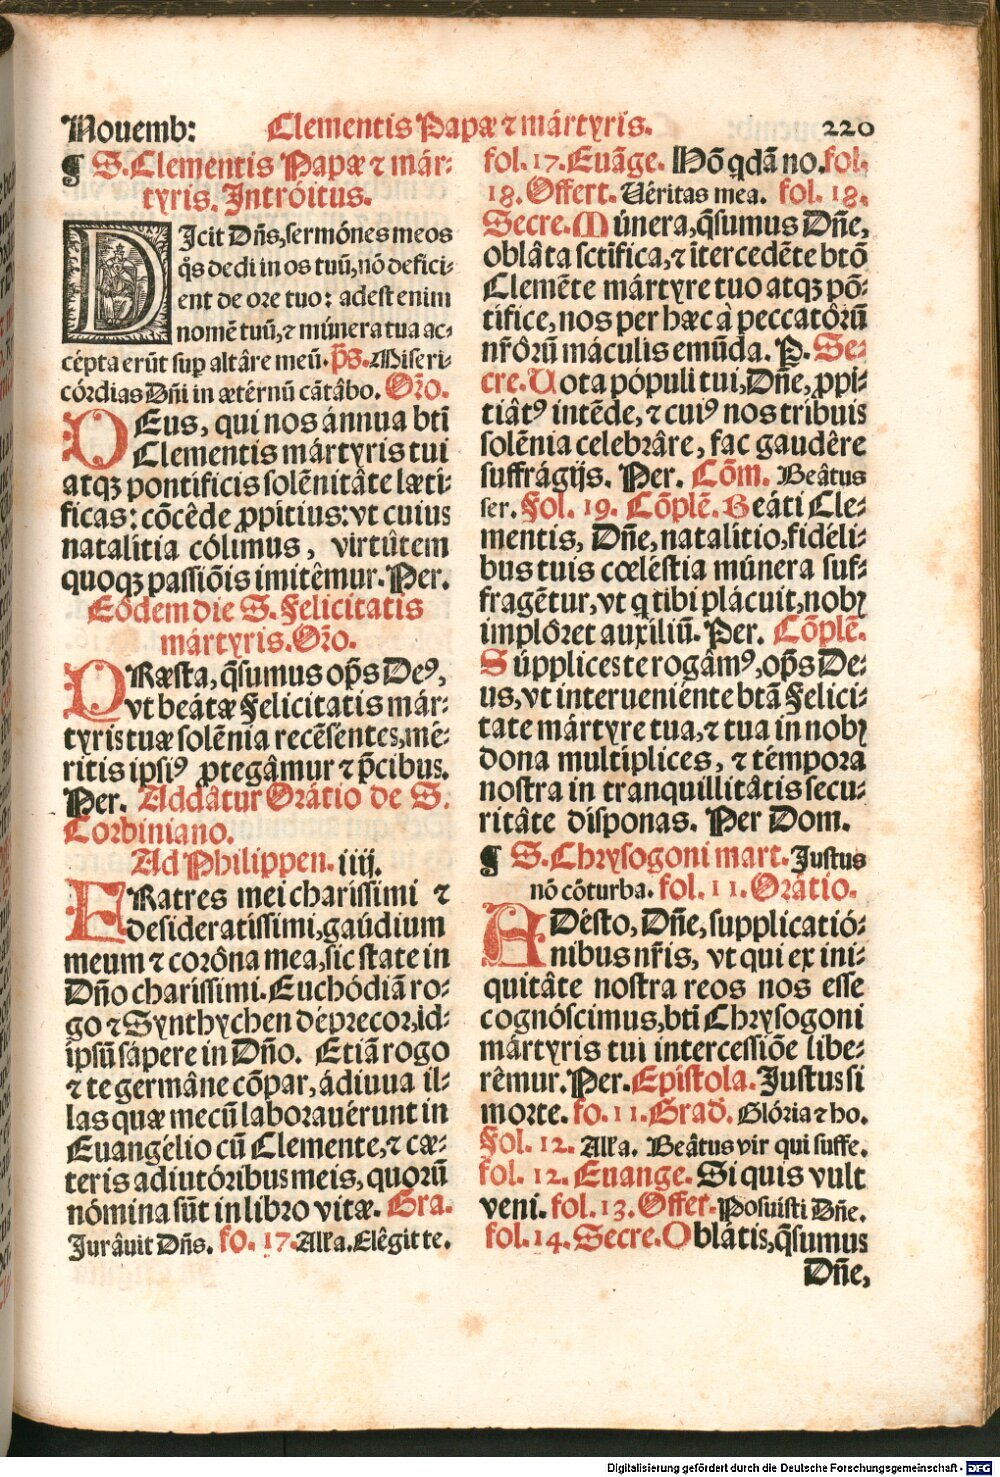 Nouemb: Clementis Papæ ⁊ mártyris. 220
¶ S. Clementis Papæ ⁊ már-
tyris. Intróitus.
DIcit Dñs, sermónes meos
q̊s dedi in os tuũ, nõ defici-
ent de ore tuo: adest enim
nomẽ tuũ, ⁊ múnera tua ac-
cépta erũt sup altâre meũ. p̃s. Miseri-
córdias Dñi in ætérnũ cãtâbo. Oro.
DEus, qui nos ánnua bti
Clementis mártyris tui
atqꝫ pontificis solẽnitâte læti-
ficas: cõcêde ꝓpitius: vt cuius
natalítia cólimus, virtûtem
quoqꝫ passiõis imitêmur. Per.
Eôdem die S. Felicitatis
mártyris. Oro.
PRæsta, q̃sumus op̃s De⁹,
vt beátæ Felicitatis már-
tyris tuæ solẽnia recẽsentes, mé-
ritis ipsi⁹ ꝓtegâmur ⁊ p̃cibus.
Per. Addâtur Orátio de S.
Corbiniano.
Ad Philippen. iiij.
FRatres mei charissimi ⁊
desideratissimi, gaúdium
meum ⁊ corôna mea, sic state in
Dño charissimi. Euchódiã ro-
go ⁊ Synthychen déprecor, id-
ipsũ sápere in Dño. Etiã rogo
⁊ te germâne cõpar, ádiuua il-
las quæ mecũ laborauérunt in
Euangélio cũ Clemente, ⁊ cæ-
teris adiutóribus meis, quorũ
nómina sũt in libro vitæ. Gra.
Jurâuit Dñs. fo. 17. Alla. Elêgit te.
fol. 17. Euãge. Hõ qdã no. fol.
18. Offert. Véritas mea. fol. 18.
Secre. Múnera, q̃sumus Dñe,
oblâta sctifica, ⁊ ĩtercedẽte btõ
Clemẽte mártyre tuo atqꝫ põ-
tifice, nos per hæc à peccatórũ
nr̃ôrũ máculis emũda. P. Se-
cre. Vota pópuli tui, Dñe, ꝓpi-
tiât⁹ intẽde, ⁊ cui⁹ nos tribuis
solẽnia celebrâre, fac gaudêre
suffrágijs. Per. Cõm. Beâtus
ser. Fol. 19. Cõplẽ. Beáti Cle-
mentis, Dñe, natalítio, fidéli-
bus tuis cœléstia múnera suf-
fragẽtur, vt q tibi plácuit, nobꝭ
implôret auxiliũ. Per. Cõplẽ.
Súpplices te rogâm⁹, op̃s De-
us, vt interueniénte btã Felici-
tate mártyre tua, ⁊ tua in nobꝭ
dona multíplices, ⁊ témpora
nostra in tranquillitâtis secu-
ritâte dispónas. Per Dom.
¶ S. Chrysogoni mart. Justus
nõ cõturba. fol. 11. Orátio.
ADésto, Dñe, supplicatió-
nibus nr̃is, vt qui ex ini-
quitâte nostra reos nos esse
cognóscimus, bti Chrysogoni
mártyris tui intercessiõe libe-
rêmur. Per. Epistola. Justus si
morte. fo. 11. Grad. Glória ⁊ ho.
Fol. 12. Alla. Beâtus vir qui suffe.
fol. 12. Euange. Si quis vult
veni. fol. 13. Offer. Posuisti Dñe.
fol. 14. Secre. Oblátis, q̃sumus
Dñe,
Digitalisierung gefördert durch die Deutsche Forschungsgemeinschaft - DFG